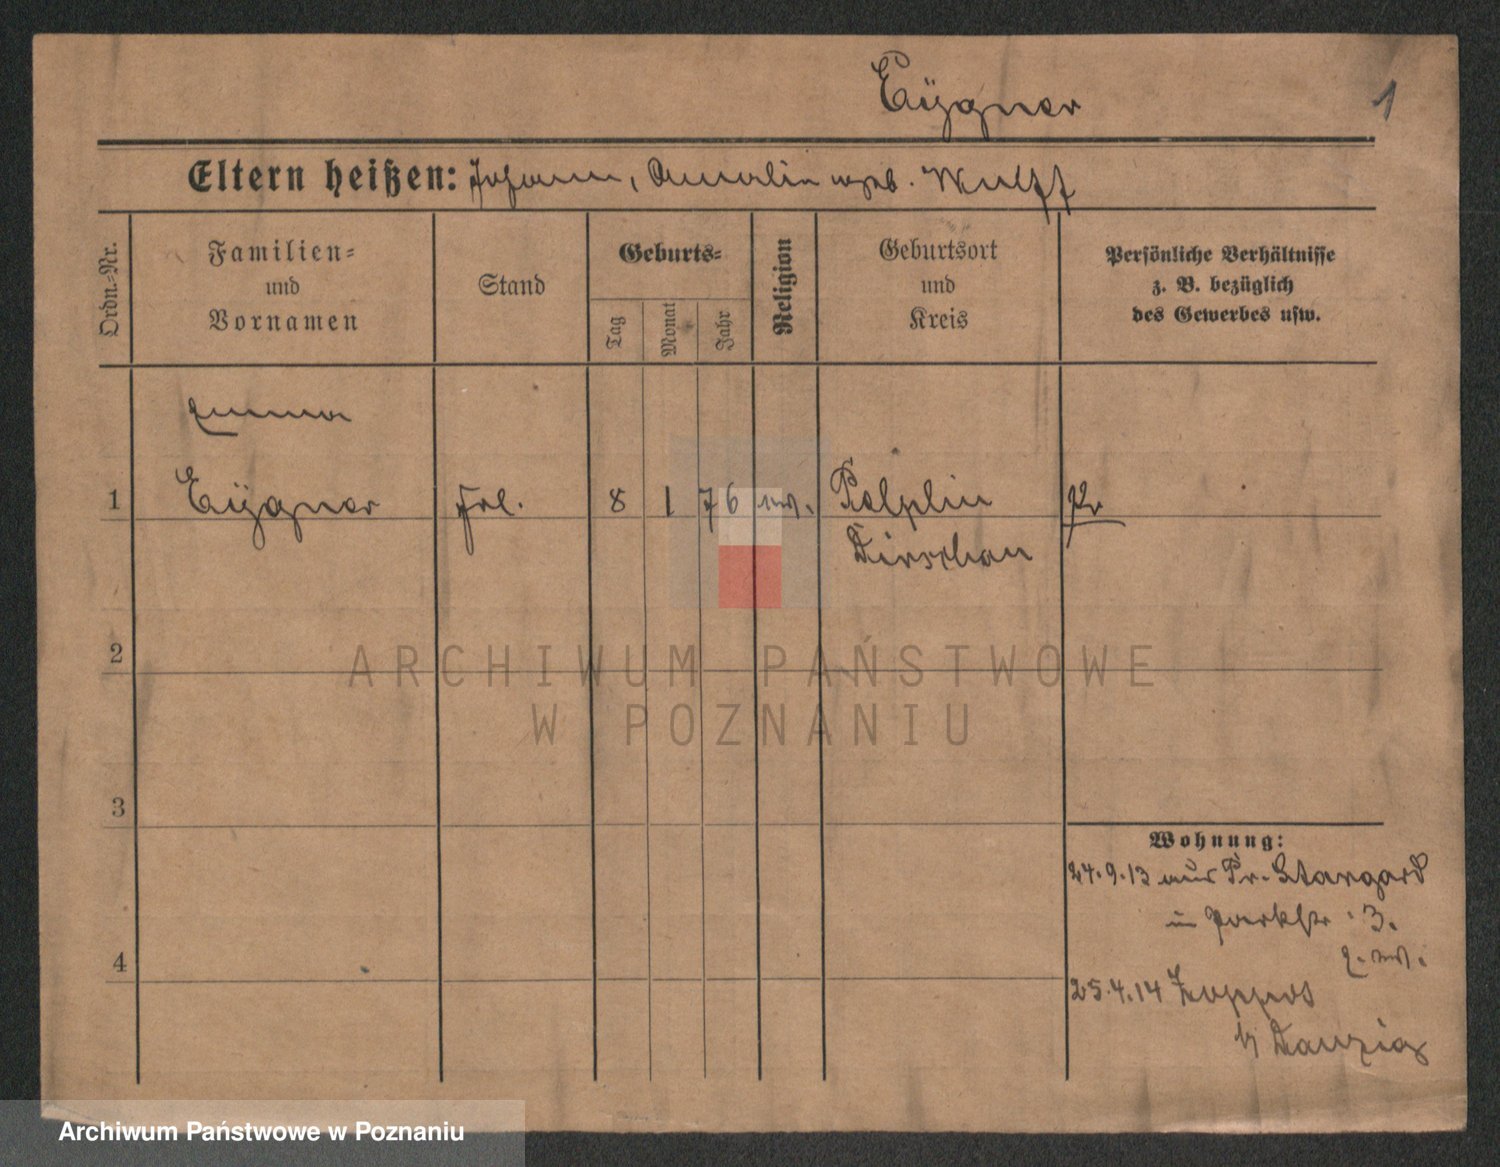 Eÿgner 1
Eltern heißen: Johann, Amalie geb. Wulff
Ordn.-Nr.
Familien-
und
Vornamen
Stand
Geburts-
Tag
Monat
Jahr
Religion
Geburtsort
und
Kreis
Persönliche Verhältnisse
z. B. bezüglich
des Gewerbes usw.
Emma
1 Eÿgner Frl. 8 1 76 ev. Pelplin Pr
Dirschau
2
ARCHIWUM PAŃSTWOWE
W POZNANIU
3
Wohnung:
24.9.13 aus Pr. Stargard
in Parkstr. 3.
4
25.4.14 Zoppot
b/ Danzig
Archiwum Państwowe w Poznaniu